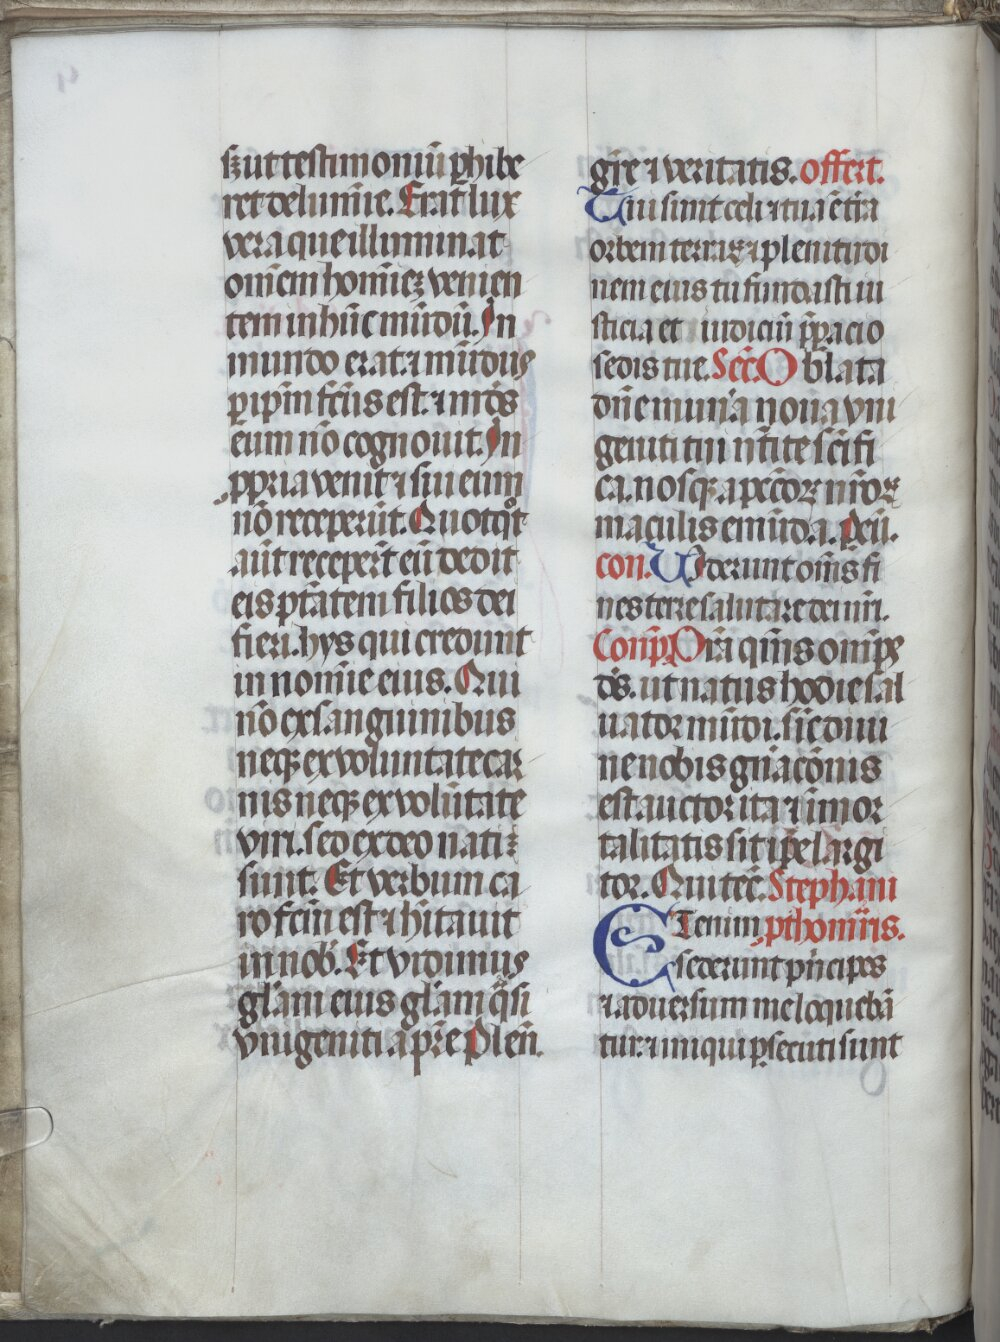 sꝫ ut testimoniū ꝑhibe
ret de lumīe. Erat lux
vera que illuminat
omēm homīeꝫ venien
tem in hūc mūdū. In
mundo erat ⁊ mūdus
ꝑ ipm̄ fc̄us est. ⁊ mūdꝰ
eum nō cognouit. In
ꝓpria venit ⁊ sui eum
nō receperūt. Quotqͦt
aūt receperūt eū dedit
eis ptātem filios dei
fieri. hys qui credunt
in nomīe eius. Qui
nō ex sanguinibus
neqꝫ ex voluntate car
nis neqꝫ ex volūtate
viri. sed ex deo nati
sunt. Et verbum ca
ro fcm̄ est ⁊ hītauit
in nob̄. Et vidimus
glām eius glām qͣsi
vnigeniti a pr̄e Plen̄.
gr̄e ⁊ veritatis. offert.
Tui sunt celi ⁊ tua ē tr̄a
orbem terraꝝ ⁊ plenitudi
nem eius tu fundasti iu
sticia et iudiciū p̄paracio
sedis tue. Sec̄. Oblata
dn̄e munr̄a noua vni
geniti tui nr̄ite sc̄ifi
ca. nosqꝫ a pctōꝝ nr̄oꝝ
maculis emūda. Peū.
con. Viderunt om̄s fi
nes terre salutare dei nr̄i.
Conp̄. Pr̄a qm̄s omīpꝫ
ds̄. ut natus hodie sal
uator mūdi. sic̄ diui
ne nobis gn̄acōnis
est auctor ita ⁊ īmor
talitatis sit ip̄e largi
tor. Qui tec̄. Stephani
ETenim ꝓthom̄ris.
sederunt pn̄cipes
⁊ aduersum me loquebā
tur. ⁊ iniqui ꝑsecuti sunt